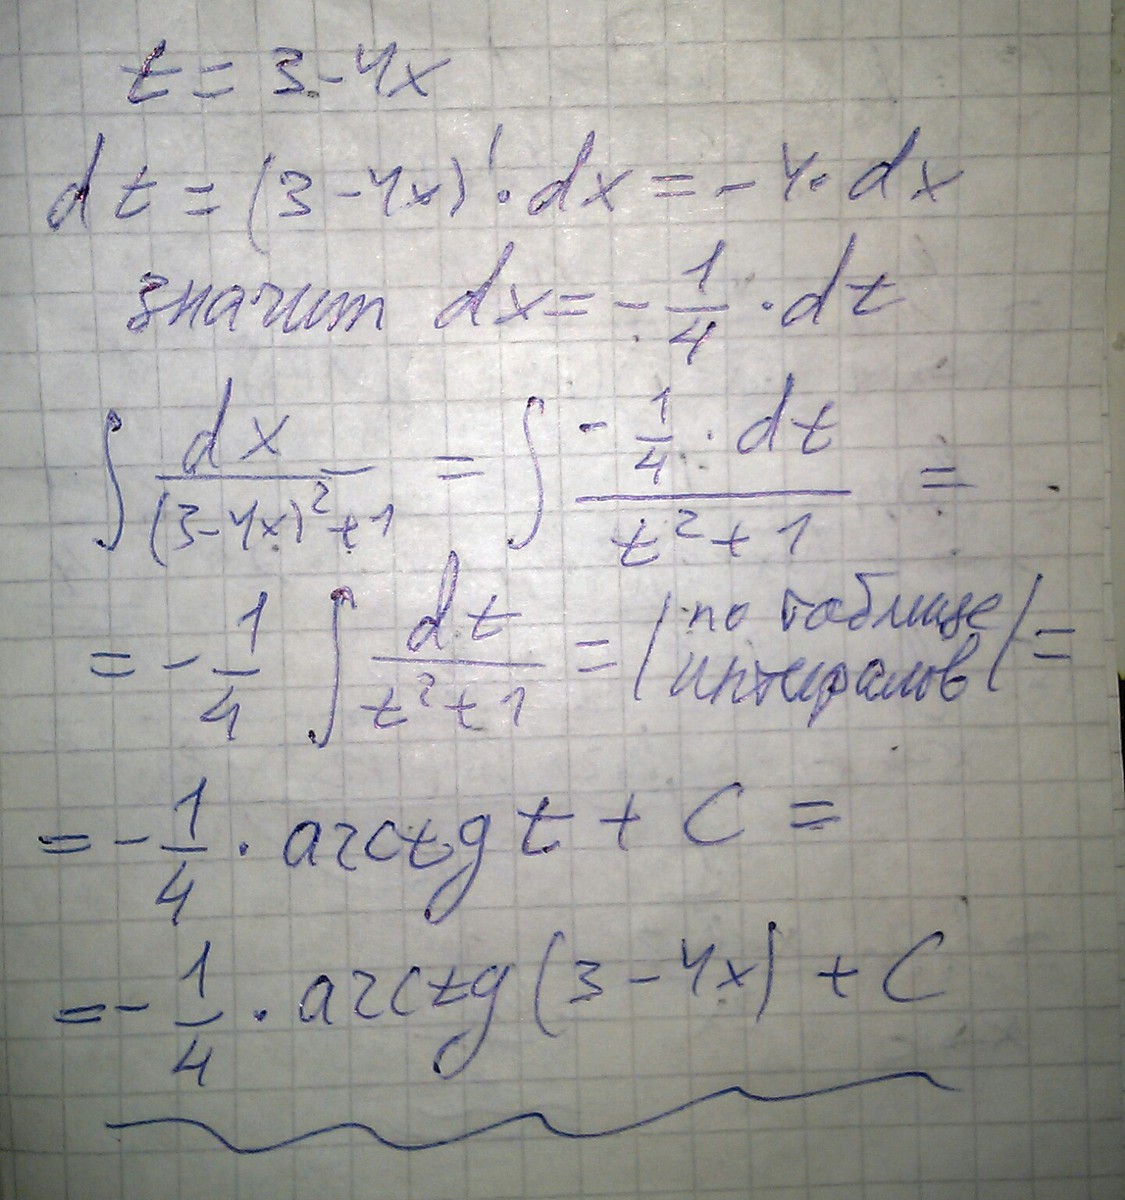 t = 3 - 4x
dt = (3 - 4x)' · dx = -4 · dx
значит dx = -1/4 · dt
∫ dx/((3-4x)² + 1) = ∫ (-1/4 · dt)/(t² + 1) =
= -1/4 ∫ dt/(t² + 1) = | по таблице интегралов | =
= -1/4 · arctg t + C =
= -1/4 · arctg (3 - 4x) + C